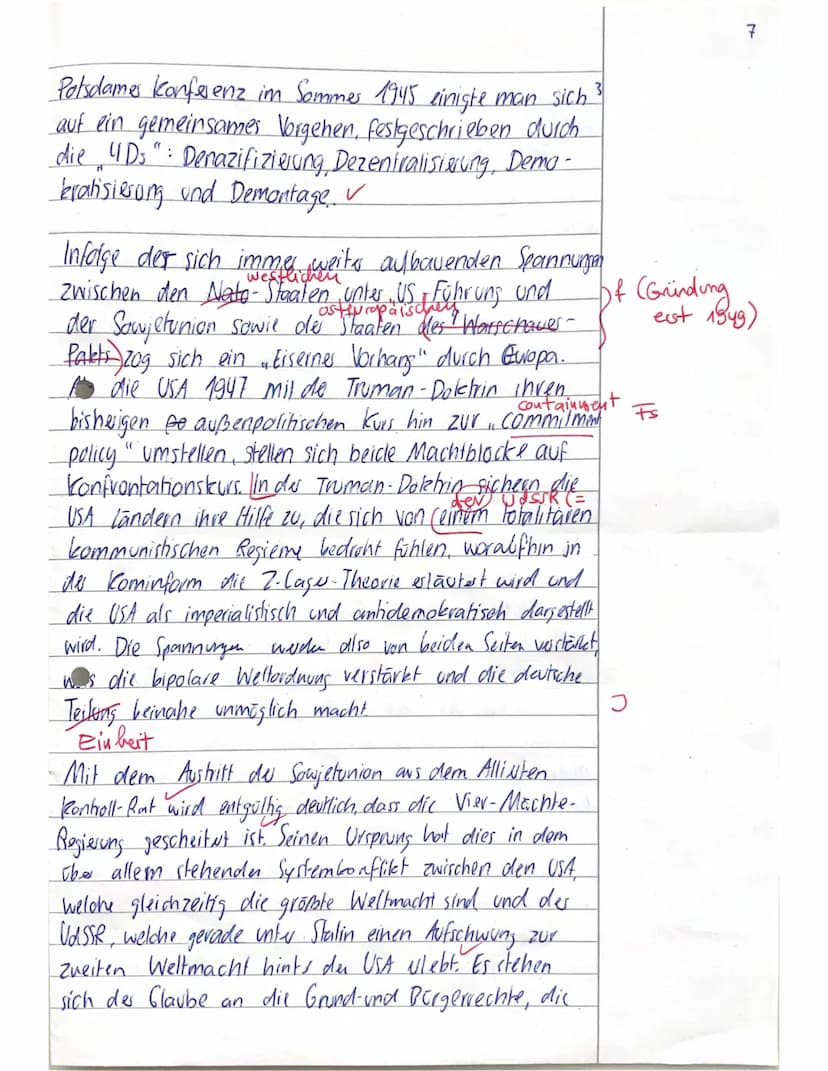 7
Potsdamer Konferenz im Sommer 1945 einigte man sich ³
auf ein gemeinsames Vorgehen, festgeschrieben durch
die „4Ds": Denazifizierung, Dezentralisierung, Demo-
kratisierung und Demontage. ✓
Infolge der sich immer weiter aufbauenden Spannungen
westlichen
zwischen den Nato-Staaten unter „US-Führung und
osteuropäischen
der Sowjetunion sowie der Staaten des Warschauer-
Pakts zog sich ein „Eiserner Vorhang" durch Europa.
f (Gründung
erst 1949)
die USA 1947 mit der Truman-Doktrin ihren
containment
bisherigen außenpolitischen Kurs hin zur „commitment
Fs
policy" umstellen, stellen sich beide Machtblöcke auf
Konfrontationskurs. In der Truman-Doktrin sichern die
der UdSSR (=
USA Ländern ihre Hilfe zu, die sich von einem totalitären
kommunistischen Regieme bedroht fühlen, woraufhin in
der Kominform die 2-Lager-Theorie erläutert wird und
die USA als imperialistisch und antidemokratisch dargestellt
wird. Die Spannungen werden also von beiden Seiten verstärkt,
was die bipolare Weltordnung verstärkt und die deutsche
Teilung beinahe unmöglich macht.
Einheit
Mit dem Austritt der Sowjetunion aus dem Alliierten
Kontroll-Rat wird entgültig deutlich, dass die Vier-Mächte-
Regierung gescheitert ist. Seinen Ursprung hat dies in dem
über allem stehenden Systemkonflikt zwischen den USA,
welche gleichzeitig die größte Weltmacht sind und der
UdSSR, welche gerade unter Stalin einen Aufschwung zur
zweiten Weltmacht hinter den USA erlebt. Es stehen
sich der Glaube an die Grund- und Bürgerrechte, die